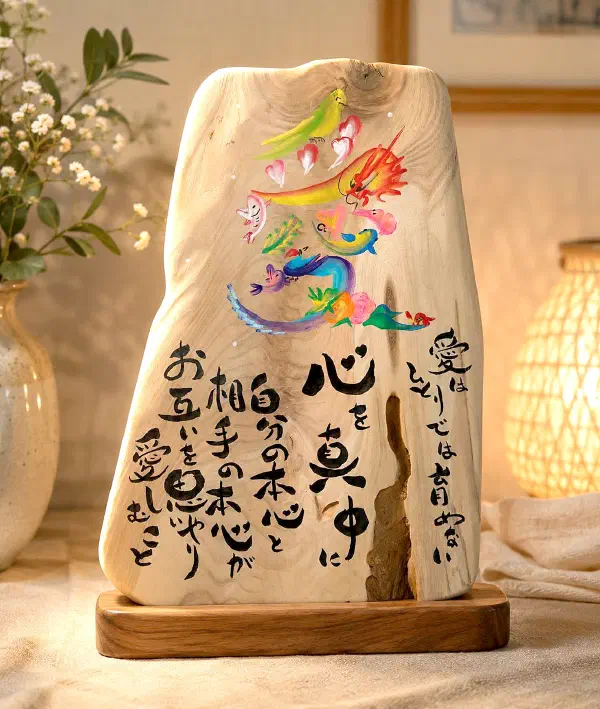 愛は
ひとりでは育めない
心を真中に
自分の本心と
相手の本心が
お互いを思いやり
愛しむこと